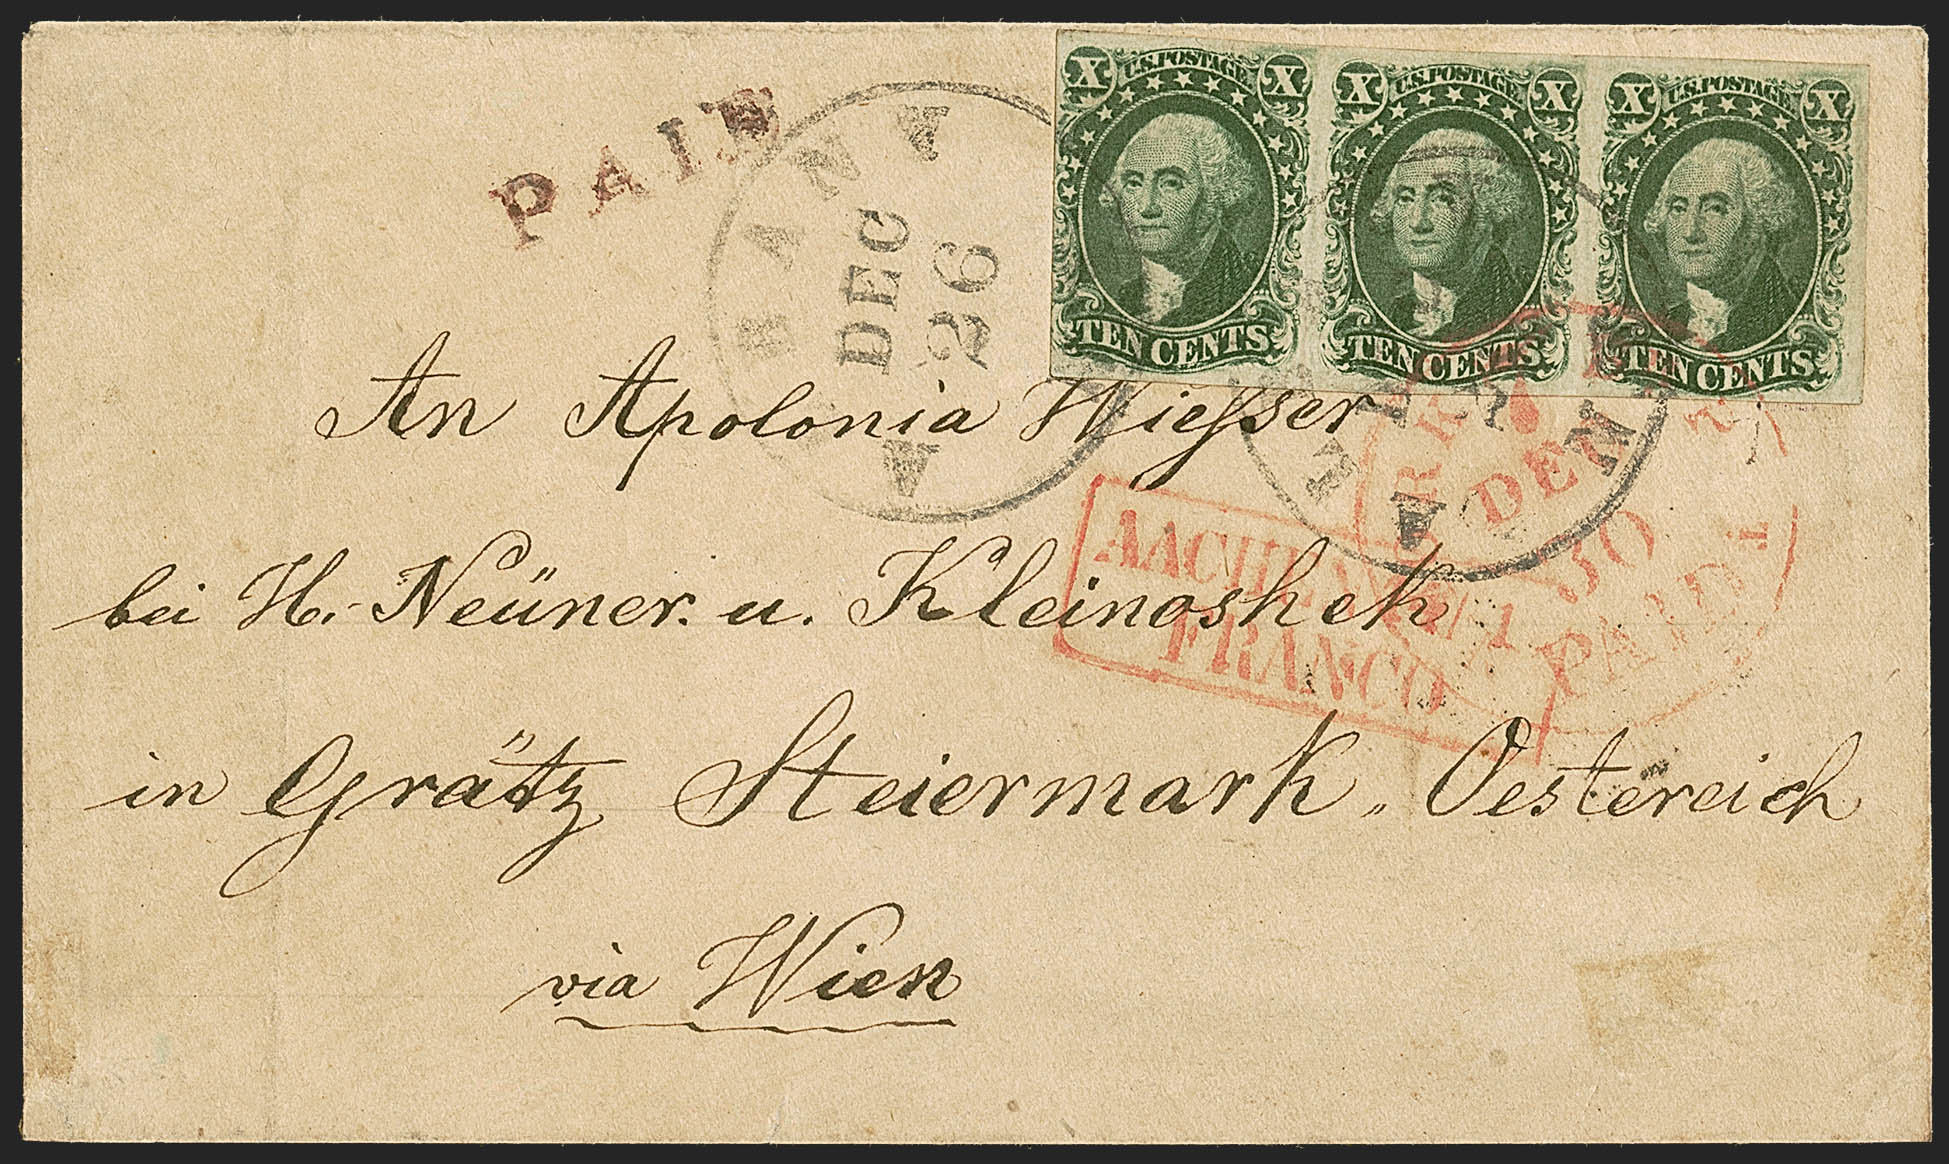 PAID
X U.S.POSTAGE X
TEN CENTS
X U.S.POSTAGE X
TEN CENTS
X U.S.POSTAGE X
TEN CENTS
DEC
26
An Apolonia Wiesser
bei H. Neüner. u. Kleinoshek
AACHEN
FRANCO
30
PAID
in Grätz Steiermark, Oestereich
via Wien